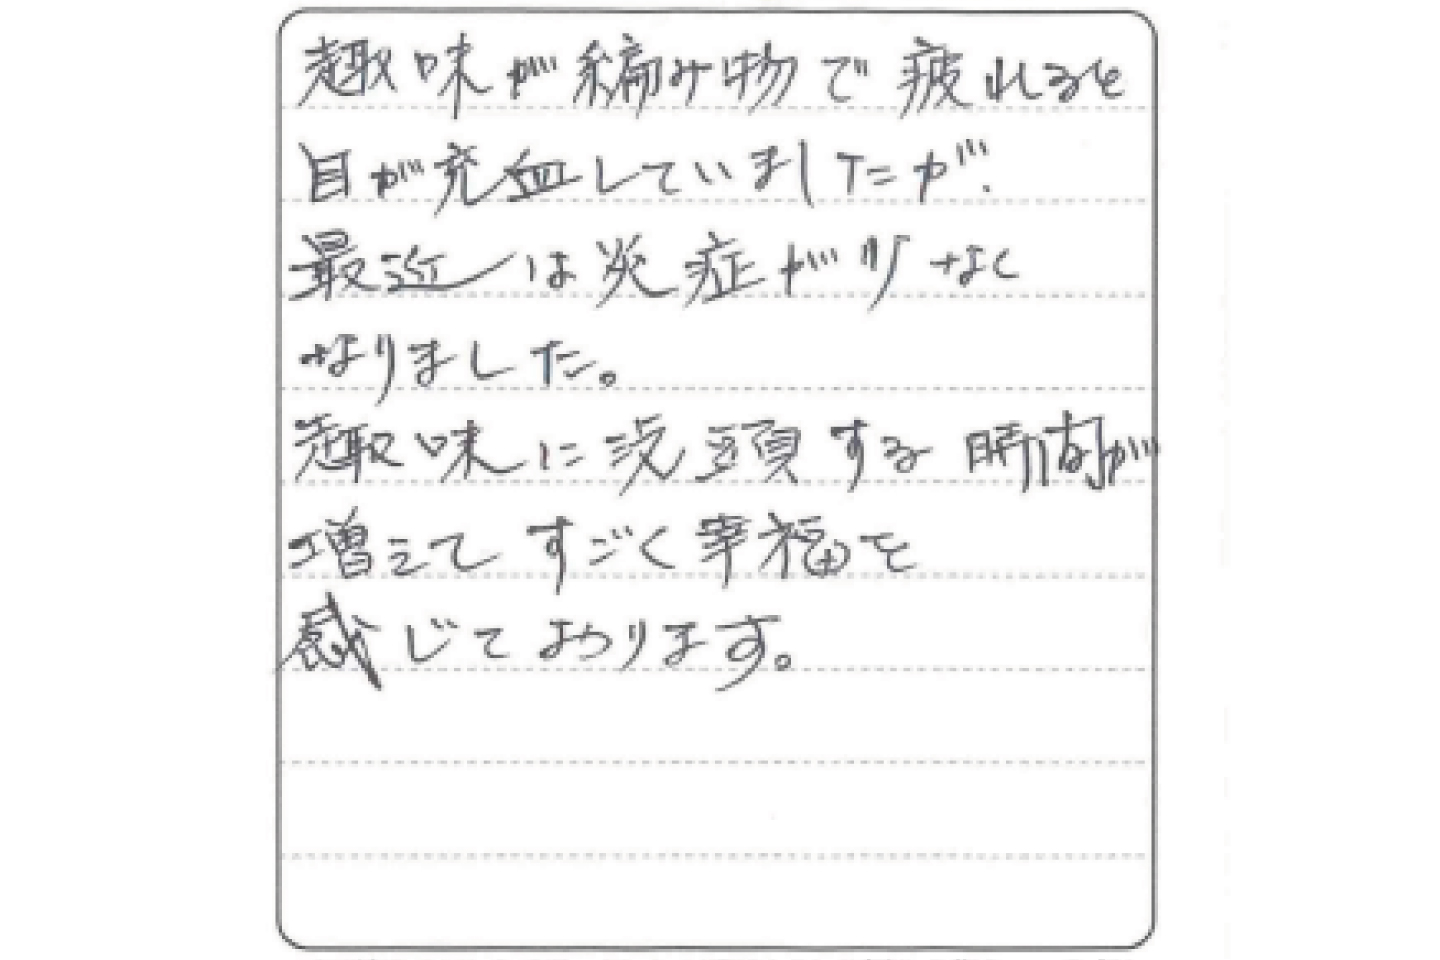 趣味が編み物で疲れると
目が充血していましたが、
最近は炎症が少なく
なりました。
趣味に没頭する時間が
増えてすごく幸福を
感じております。